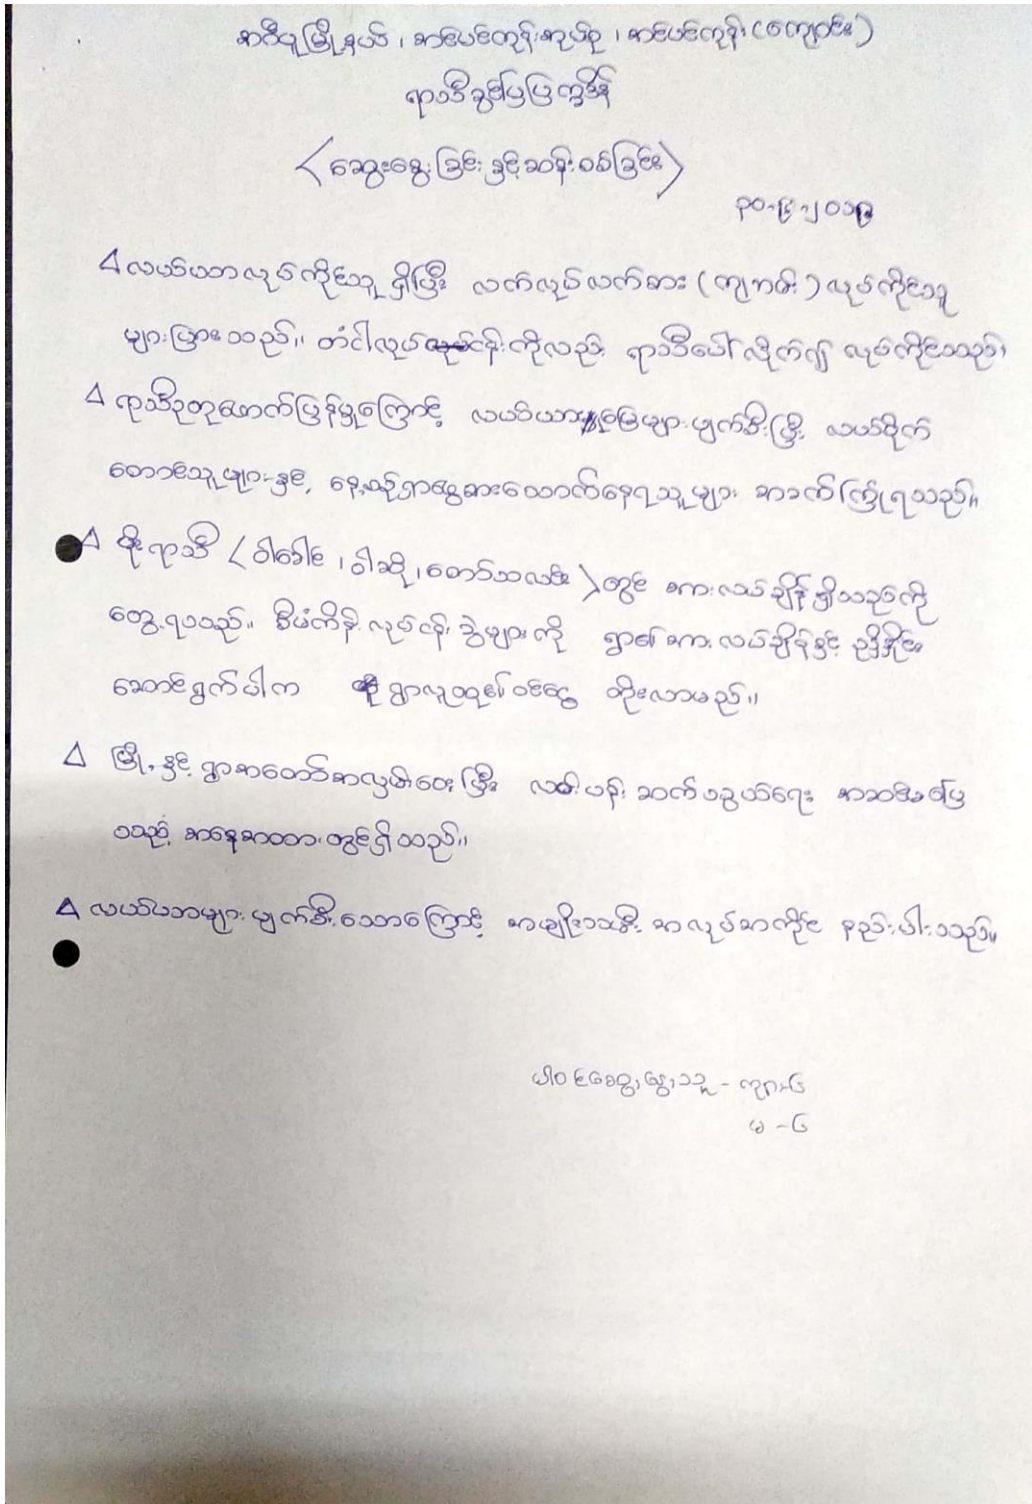 အင်ပင်ကုန်းအုပ်စု ၊ အင်ပင်ကုန်း (ကျောင်း)
ရာသီခွင်ပြပြက္ခဒိန်
〈ဆွေးနွေးခြင်းနှင့်ဆန်းစစ်ခြင်း〉
၃၀-၄-၂၀၁၉
△ လယ်ယာလုပ်ကိုင်သူ ရှိပြီး လက်လုပ်လက်စား (ကျဘမ်း) လုပ်ကိုင်သူ
များပြားသည်။ တံငါလုပ်ငန်းကိုလည်း ရာသီပေါ်လိုက်၍ လုပ်ကိုင်သည်။
△ ရာသီဥတုဖောက်ပြန်မှုကြောင့် လယ်ယာမြေများပျက်စီးပြီး လယ်စိုက်
တောင်သူများနှင့် နေ့စဉ်ရှာဖွေစားသောက်နေရသူများ အခက်ကြုံရသည်။
△ မိုးရာသီ 〈ဝါခေါင် ၊ ဝါဆို ၊ တော်သလင်း〉တွင် အားလပ်ချိန်ရှိသည်ကို
တွေ့ရသည်။ စီမံကိန်းလုပ်ငန်းခွဲများကို ရွာ၏အားလပ်ချိန်နှင့်
ဆောင်ရွက်ပါက ရွာလူထု၏ဝင်ငွေ တိုးလာမည်။
△ မြို့နှင့် ရွာအတော်အလှမ်းဝေးပြီး လမ်းပန်းဆက်သွယ်ရေး
သည့် အနေအထားတွင်ရှိသည်။
△ လယ်ယာများပျက်စီးသောကြောင့် အမျိုးသမီး အလုပ်အကိုင် နည်းပါးသည်။
ပါဝင်ဆွေးနွေးသူ - ကျား-၆
မ - ၆